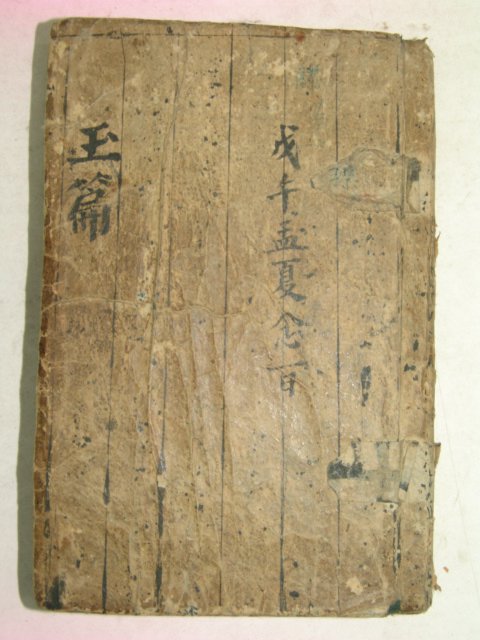 戊午孟夏念一日
玉篇